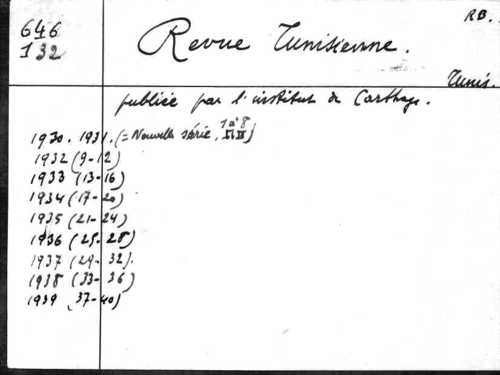 RB.
646
132
Revue Tunisienne.
Tunis.
publiée par l'institut de Carthage.
1930. 1931. (= Nouvelle série, 1 à 8 I, II)
1932 (9-12)
1933 (13-16)
1934 (17-20)
1935 (21-24)
1936 (25-28)
1937 (29-32).
1938 (33-36)
1939 (37-40)